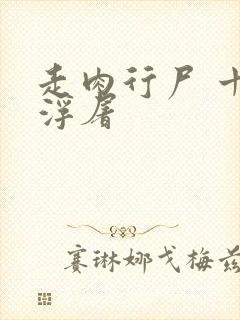 走肉行尸 十
浮屠
赛琳娜戈梅兹